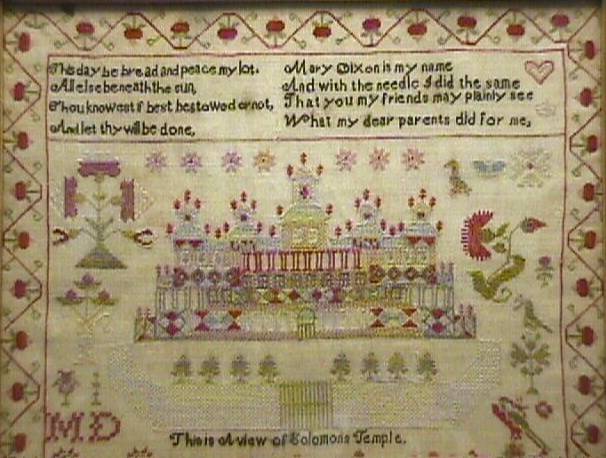 This day be bread and peace my lot.
All else beneath the sun,
Thou knowest if best bestowed or not,
And let thy will be done,
Mary Dixon is my name
And with the needle I did the same
That you my friends may plainly see
What my dear parents did for me,
MD
This is A view of Solomons Temple.